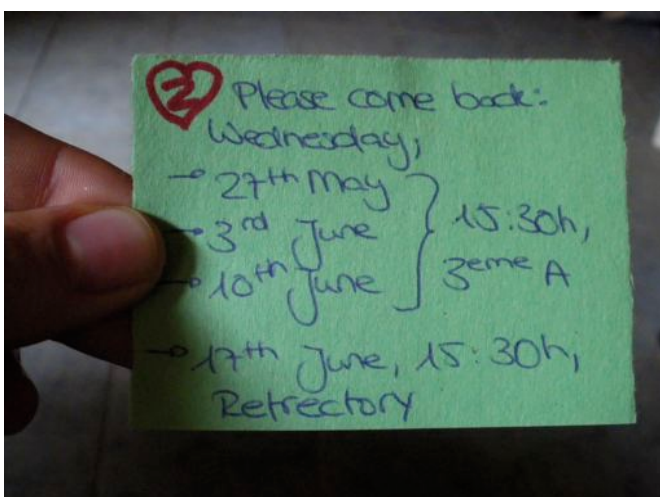 2 Please come back:
Wednesday,
→ 27th May
→ 3rd June
→ 10th June
15:30h,
3eme A
→ 17th June, 15:30h,
Retrectory